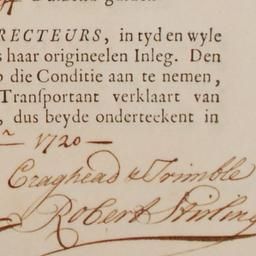 Duizend guldens
RECTEURS, in tyd en wyle
s haar origineelen Inleg. Den
o die Conditie aan te nemen,
Tranſportant verklaart van
, dus beyde onderteekent in
1720
Craghead & Trimble
Robert Stirling